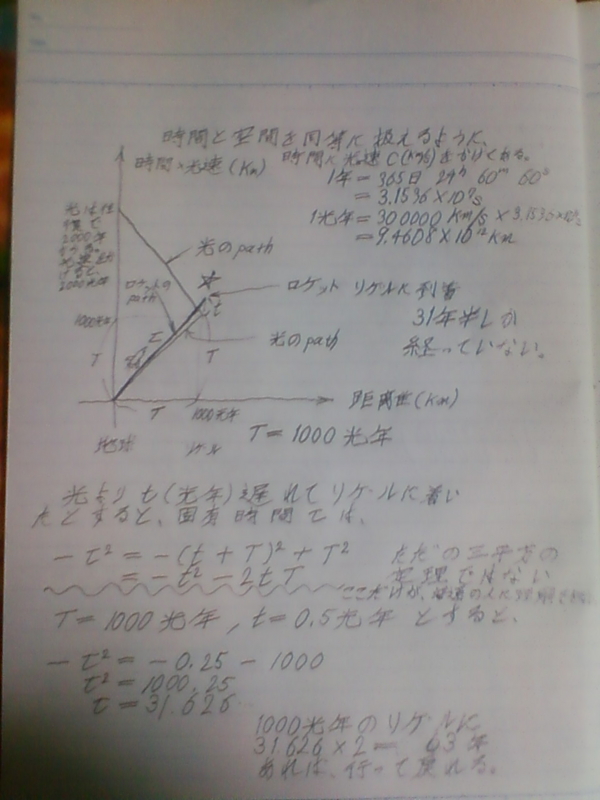 時間と空間を同等に扱えるように、
時間に光速C(km/s)をかけてる。
時間×光速(Km)
1年=365日 24h 60m 60s
=3.1536×10⁷s
1光年=300000 Km/s×3.1536×10⁷s
=9.4608×10¹²Km
光は往
復で
2000年
2000光年
光のpath
ロケットの
path
ロケット リゲルに到着
31年半しか
経っていない。
1000光年
τ
t
T
T
光のpath
距離(Km)
T
1000光年
地球
リゲル
T=1000光年
光よりt(光年)遅れてリゲルに着い
たとすると、固有時間では、
-τ²=-(t+T)²+T²
=-t²-2tT
ただの三平方の
定理ではない
ここだけが、普通の人に
T=1000光年, t=0.5光年 とすると、
-τ²=-0.25-1000
τ²=1000.25
τ=31.626…
1000光年のリゲルに
31.626×2= 63年
あれば、行って戻れる。